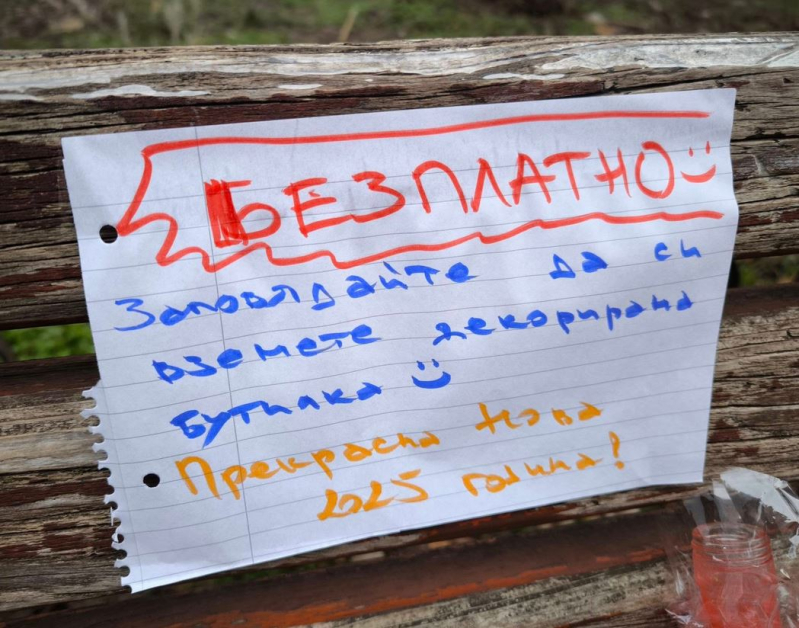 БЕЗПЛАТНО
Заповядайте да си
вземете декорирана
бутилка
Прекрасна Нова
2025 година!